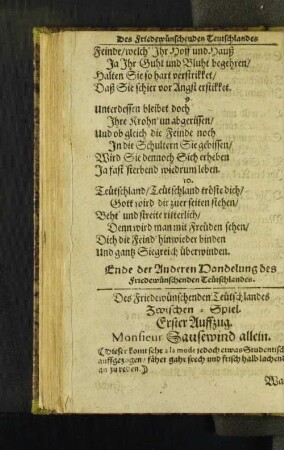 Des Friedewünschenden Teutschlandes
Feinde/welch' Ihr Hoff und Hauß
Ja Ihr Guht und Bluht begehren/
Halten Sie so hart verstrikket/
Daß Sie schier vor Angst erstikket.
9.
Unterdessen bleibet doch
Ihre Krohn' un abgerissen/
Und ob gleich die Feinde noch
In die Schultern Sie gebissen/
Wird Sie dennoch Sich erheben
Ja fast sterbend wiedrum leben.
10.
Teütschland/Teütschland tröste dich/
Gott wird dir zuer seiten stehen/
Beht' und streite ritterlich/
Denn wird man mit Freüden sehen/
Dich die Feind' hinwieder binden
Und gantz Siegreich überwinden.
Ende der Anderen Handelung des
Friedewünschenden Teütschlandes.
Des Friedewünschenden Teütschlandes
Zwischen-Spiel.
Erster Auffzug.
Monsieur Sausewind allein.
(Dieser komt sehr a la mode jedoch etwas Studentisch
auffgezogen/ fähet gahr frech und frisch halb lachend
an zu reden.)